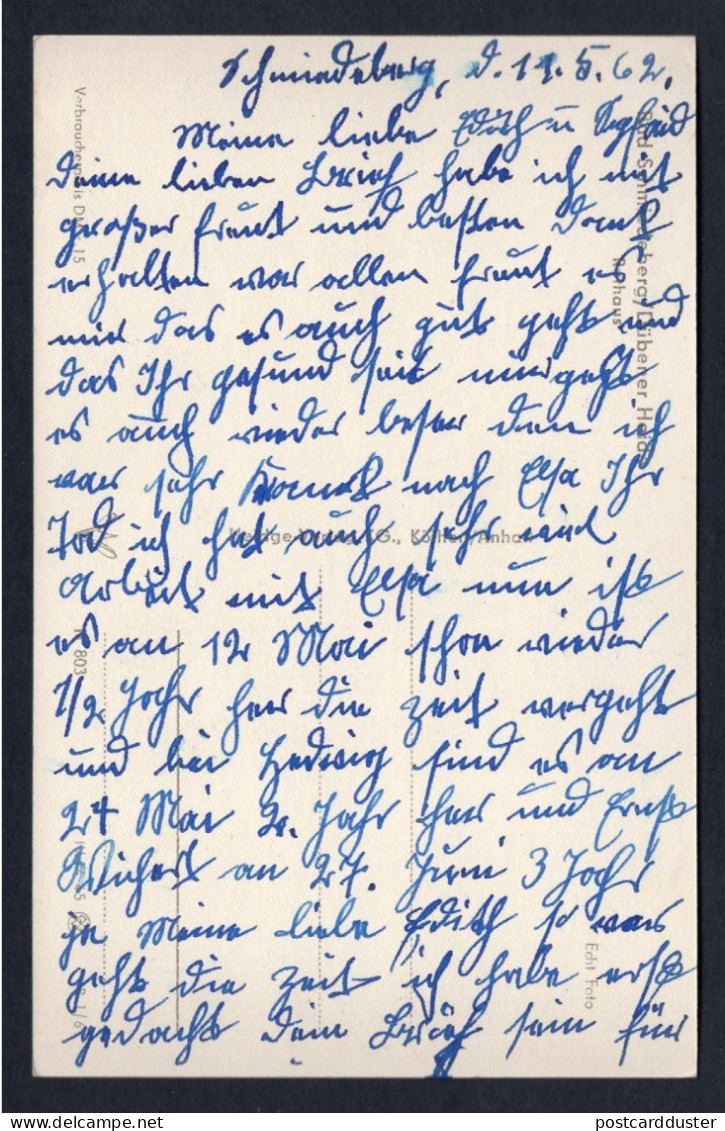 Schmiedeberg, d. 11.5.62.
Meine liebe Edith u Siegfried
deine lieben Brief habe ich mit
großer Freut und besten Dank
erhalten vor allen freut es
mir das es auch gut geht und
das Ihr gesund seit mir geht
es auch wieder beser denn ich
war sehr Krank nach Elsa Ihr
Tod ich hat auch sehr viel
Arbeit mit Elsa nun ist
es am 12 Mai schon wieder
1/2 Jahr her die Zeit vergeht
und bei Hedwig sind es am
24 Mai 2. Jahr her und Ernst
am 27. Juni 3 Jahr
ja Meine liebe Edith so
geht die Zeit ich habe erst
gedacht dein Brief sein für
Bad Schmiedeberg/Dübener Heide
Verlag KG., Köthen/Anhalt
Echt Foto
803
postcardduster